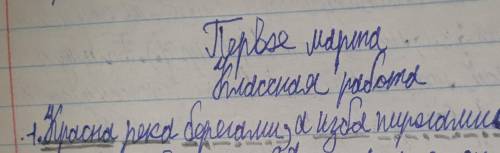 Первое марта
Классная работа
1. Красна река берегами, а изба пирогами.